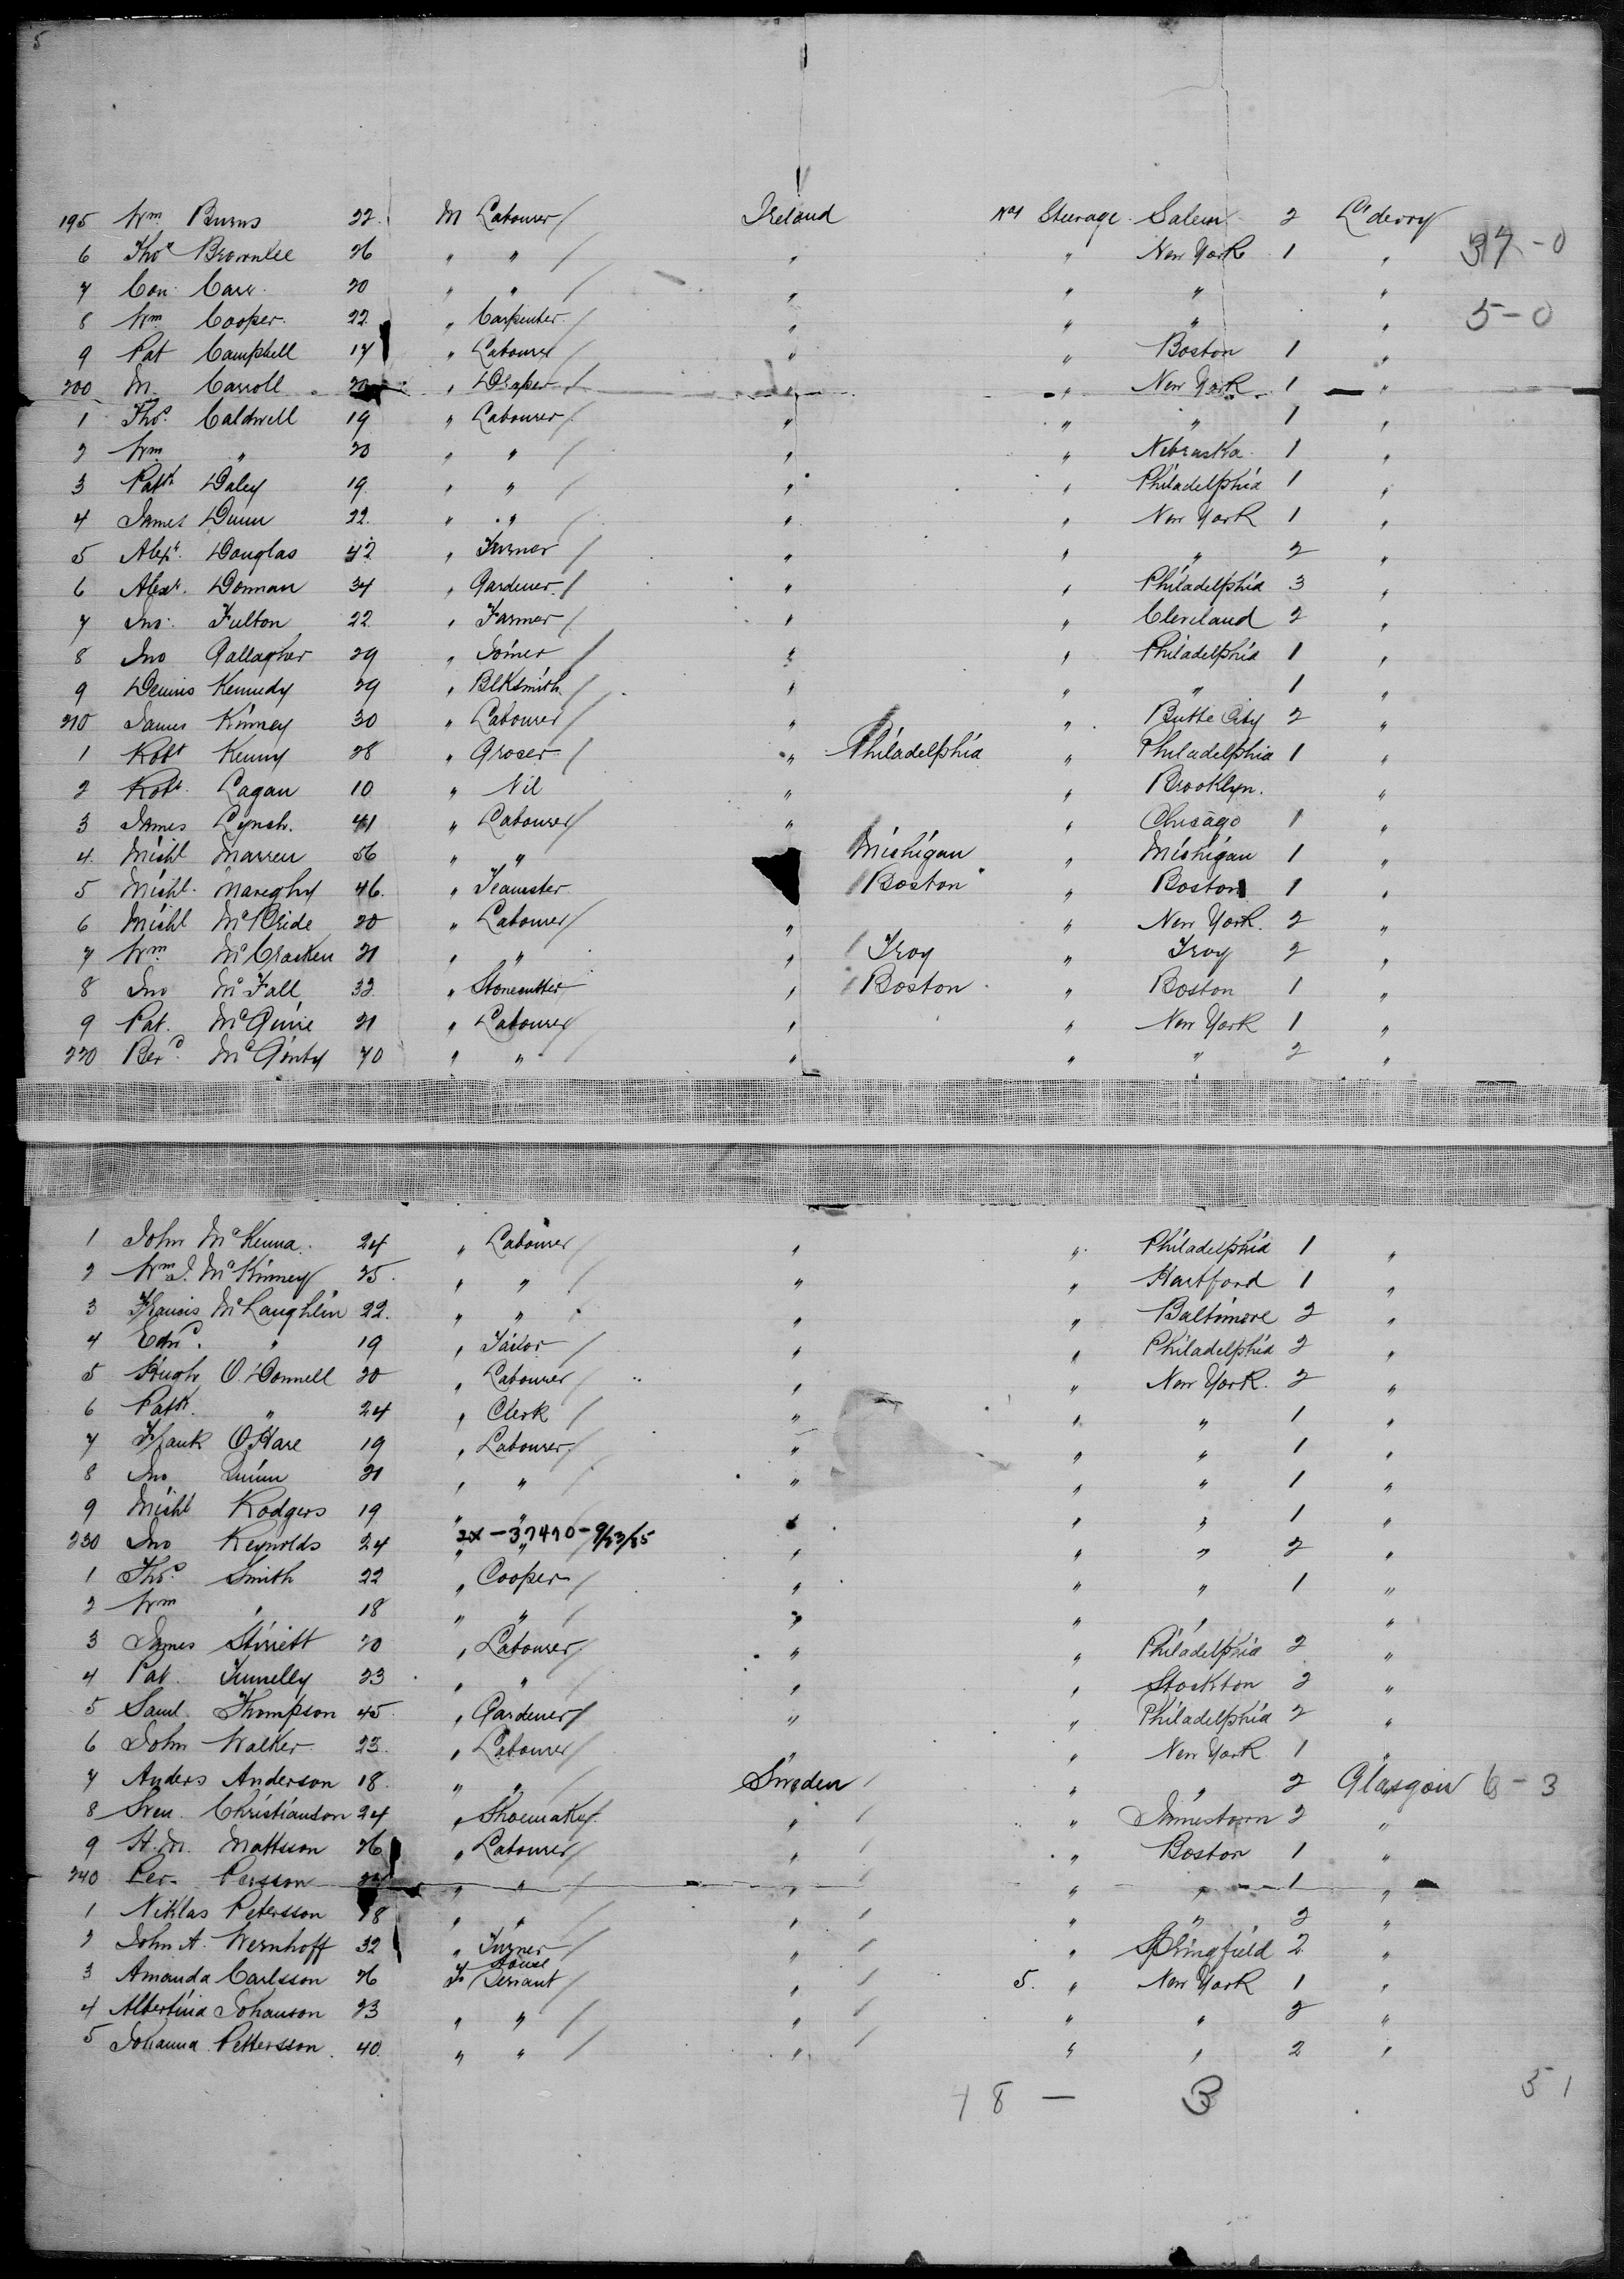 5
195 Wm Burns 22. M Labourer / Ireland No 1 Steerage Salem 2 L'derry
6 Thos Brownlee 26 " " / " " New York 1 " 37-0
7 Con Carr 20 " " / " " " "
8 Wm Cooper 22 " Carpenter / " " " " 5-0
9 Pat Campbell 17 " Labourer / " " Boston 1 "
200 M. Carroll 20 " Draper / " " New York 1 "
1 Thos Caldwell 19 " Labourer / " " " 1 "
2 Wm " 20 " " / " " Nebraska 1 "
3 Patk Daley 19 " " / " " Philadelphia 1 "
4 James Dunn 22 " " / " " New York 1 "
5 Alexr Douglas 42 " Turner / " " " 2 "
6 Alexr. Donnan 34 " Gardener / " " Philadelphia 3 "
7 Jno. Fulton 22 " Farmer / " " Cleveland 2 "
8 Jno Gallagher 29 " Joiner / " " Philadelphia 1 "
9 Dennis Kennedy 29 " Blksmith / " " " 1 "
210 James Kinney 30 " Labourer / " " Butte City 2 "
1 Robt Kenny 28 " Grocer / " Philadelphia " Philadelphia 1 "
2 Robt. Lagan 10 " Nil " " Brooklyn. "
3 James Lynch. 41 " Labourer / " " Chicago 1 "
4 Michl Marren 56 " " Michigan " Michigan 1 "
5 Michl. Mareghy 46. " Teamster Boston " Boston 1 "
6 Michl McBride 20 " Labourer / " " New York. 2 "
7 Wm McCracken 21 " " " Troy " Troy 2 "
8 Jno McFall 32 " Stonecutter " Boston " Boston 1 "
9 Pat. McGinie 21 " Labourer / " " New York 1 "
220 Berd McGinty 70 " " / " " " 2 "
1 John McKenna 24 " Labourer / " " Philadelphia 1 "
2 Wm J. McKinney 25. " " / " " Hartford 1 "
3 Francis McLaughlin 22. " " " " Baltimore 2 "
4 Edwd. " 19 " Tailor / " " Philadelphia 2 "
5 Hugh O'Donnell 20 " Labourer / " " New York. 2 "
6 Patk. " 24 " Clerk / " " " 1 "
7 Frank O'Hare 19 " Labourer / " " " 1 "
8 Jno Quinn 21 " " / " " " 1 "
9 Michl Rodgers 19 " " / " " " 1 "
230 Jno Reynolds 24 2x-37470-9/23/85 " " / " " " 2 "
1 Thos Smith 22 " Cooper / " " " 1 "
2 Wm " 18 " " / " " " "
3 James Stirrett 20 " Labourer / " " Philadelphia 2 "
4 Pat Tunnelly 23 " " / " " Stockton 2 "
5 Saml. Thompson 45 " Gardener / " " Philadelphia 2 "
6 John Walker 23. " Labourer / " " New York 1 "
7 Anders Anderson 18. " " / Sweden / " " 2 Glasgow 6-3
8 Sven. Christianson 24 " Shoemaker " / " Jamestown 2 "
9 St. M. Mattsson 26 " Labourer / " / " Boston 1 "
240 Per. Persson " " / " " " 1 "
1 Niklas Petersson 18 " " / " / " " 2 "
2 John A. Wernhoff 32 " Turner / " / " Springfield 2 "
3 Amanda Carlsson 26 F House Servant / " / 5. " New York 1 "
4 Albertina Johanson 23 " " / " / " " 2 "
5 Johanna Pettersson 40 " " / " / " " 2 "
48 - 3 51